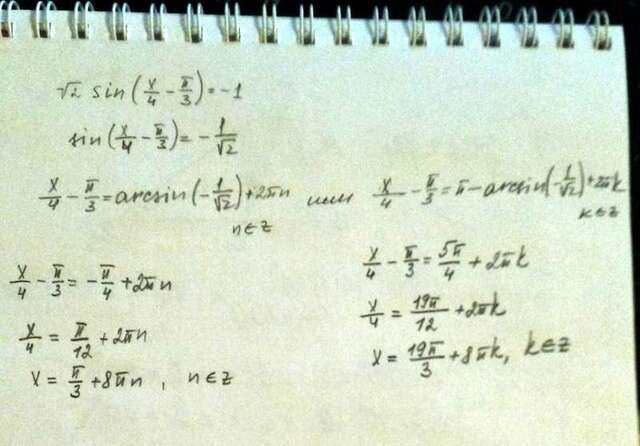 √2 sin(x/4 - π/3) = -1
sin(x/4 - π/3) = -1/√2
x/4 - π/3 = arcsin(-1/√2) + 2πn или x/4 - π/3 = π - arcsin(-1/√2) + 2πk
n∈z k∈z
x/4 - π/3 = -π/4 + 2πn
x/4 = π/12 + 2πn
x = π/3 + 8πn, n∈z
x/4 - π/3 = 5π/4 + 2πk
x/4 = 19π/12 + 2πk
x = 19π/3 + 8πk, k∈z